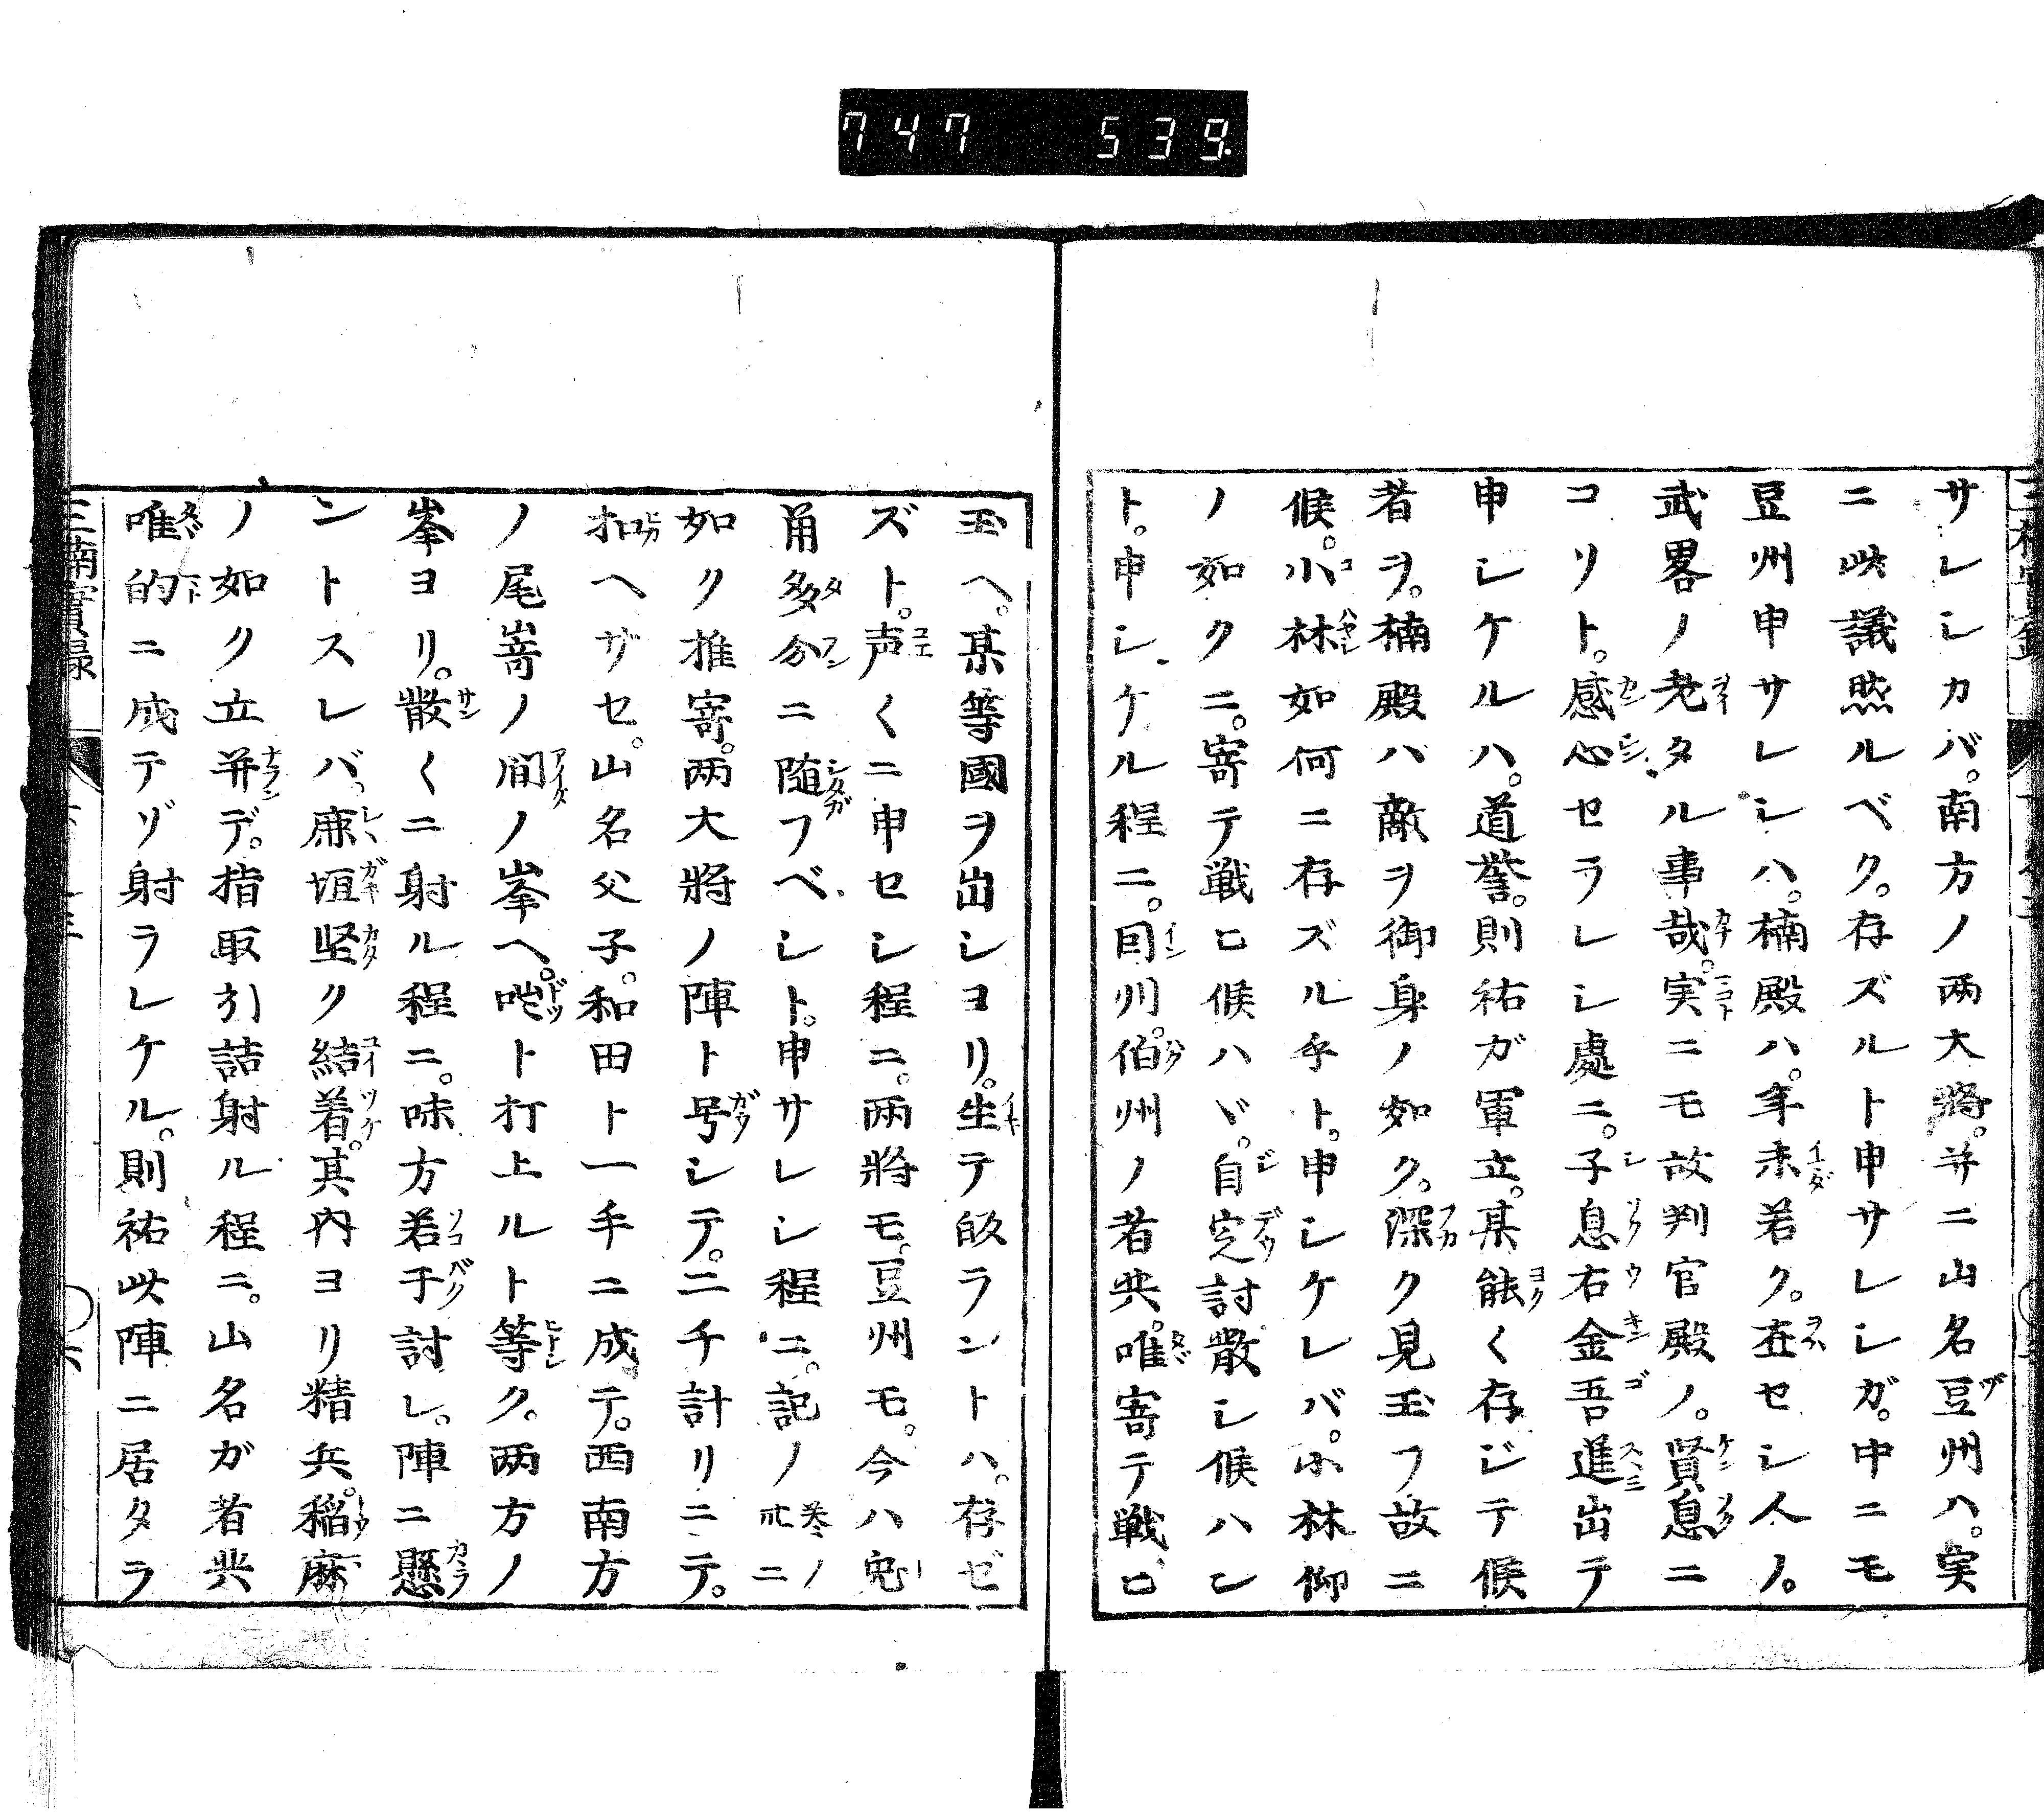 747 539
サレシカバ。南方ノ両大將。并ニ山名豆州ハ。実
ニ此議然ルベク。存ズルト申サレシガ。中ニモ
豆州申サレシハ。楠殿ハ。年未若ク。在セシ人ノ。
武畧ノ老タル事哉。実ニモ故判官殿ノ。賢息ニ
コリト。感心セラレシ處ニ。子息右金吾進出テ
申シケルハ。道誉。則祐ガ軍立。某能く存ジテ候
者ヲ。楠殿ハ敵ヲ御身ノ如ク。深ク見玉フ故ニ
候。小林如何ニ存ズル乎ト。申シケレバ。小林仰
ノ如クニ。寄テ戦ヒ候ハヾ。自定討散シ候ハン
ト。申シケル程ニ。因州。伯州ノ者共。唯寄テ戦ヒ
玉ヘ。某等國ヲ出シヨリ。生テ皈ラントハ。存ゼ
ズト。声くニ申セシ程ニ。両將モ。豆州モ。今ハ兎
角多分ニ随フベシト。申サレシ程ニ。記ノ卅二巻ノ
如ク推寄。両大將ノ陣ト号シテ。二千計リニテ。
扣ヘザセ。山名父子。和田ト一手ニ成テ。西南方
ノ尾嵜ノ間ノ峯ヘ。咄ト打上ルト等ク。両方ノ
峯ヨリ。散くニ射ル程ニ。味方若干討レ。陣ニ懸
ントスレバ。廉垣堅ク結着。其内ヨリ精兵。稲麻
ノ如ク立并デ。指取引詰射ル程ニ。山名ガ者共
唯的ニ成テゾ射ラレケル。則祐此陣ニ居タラ
三楠實録